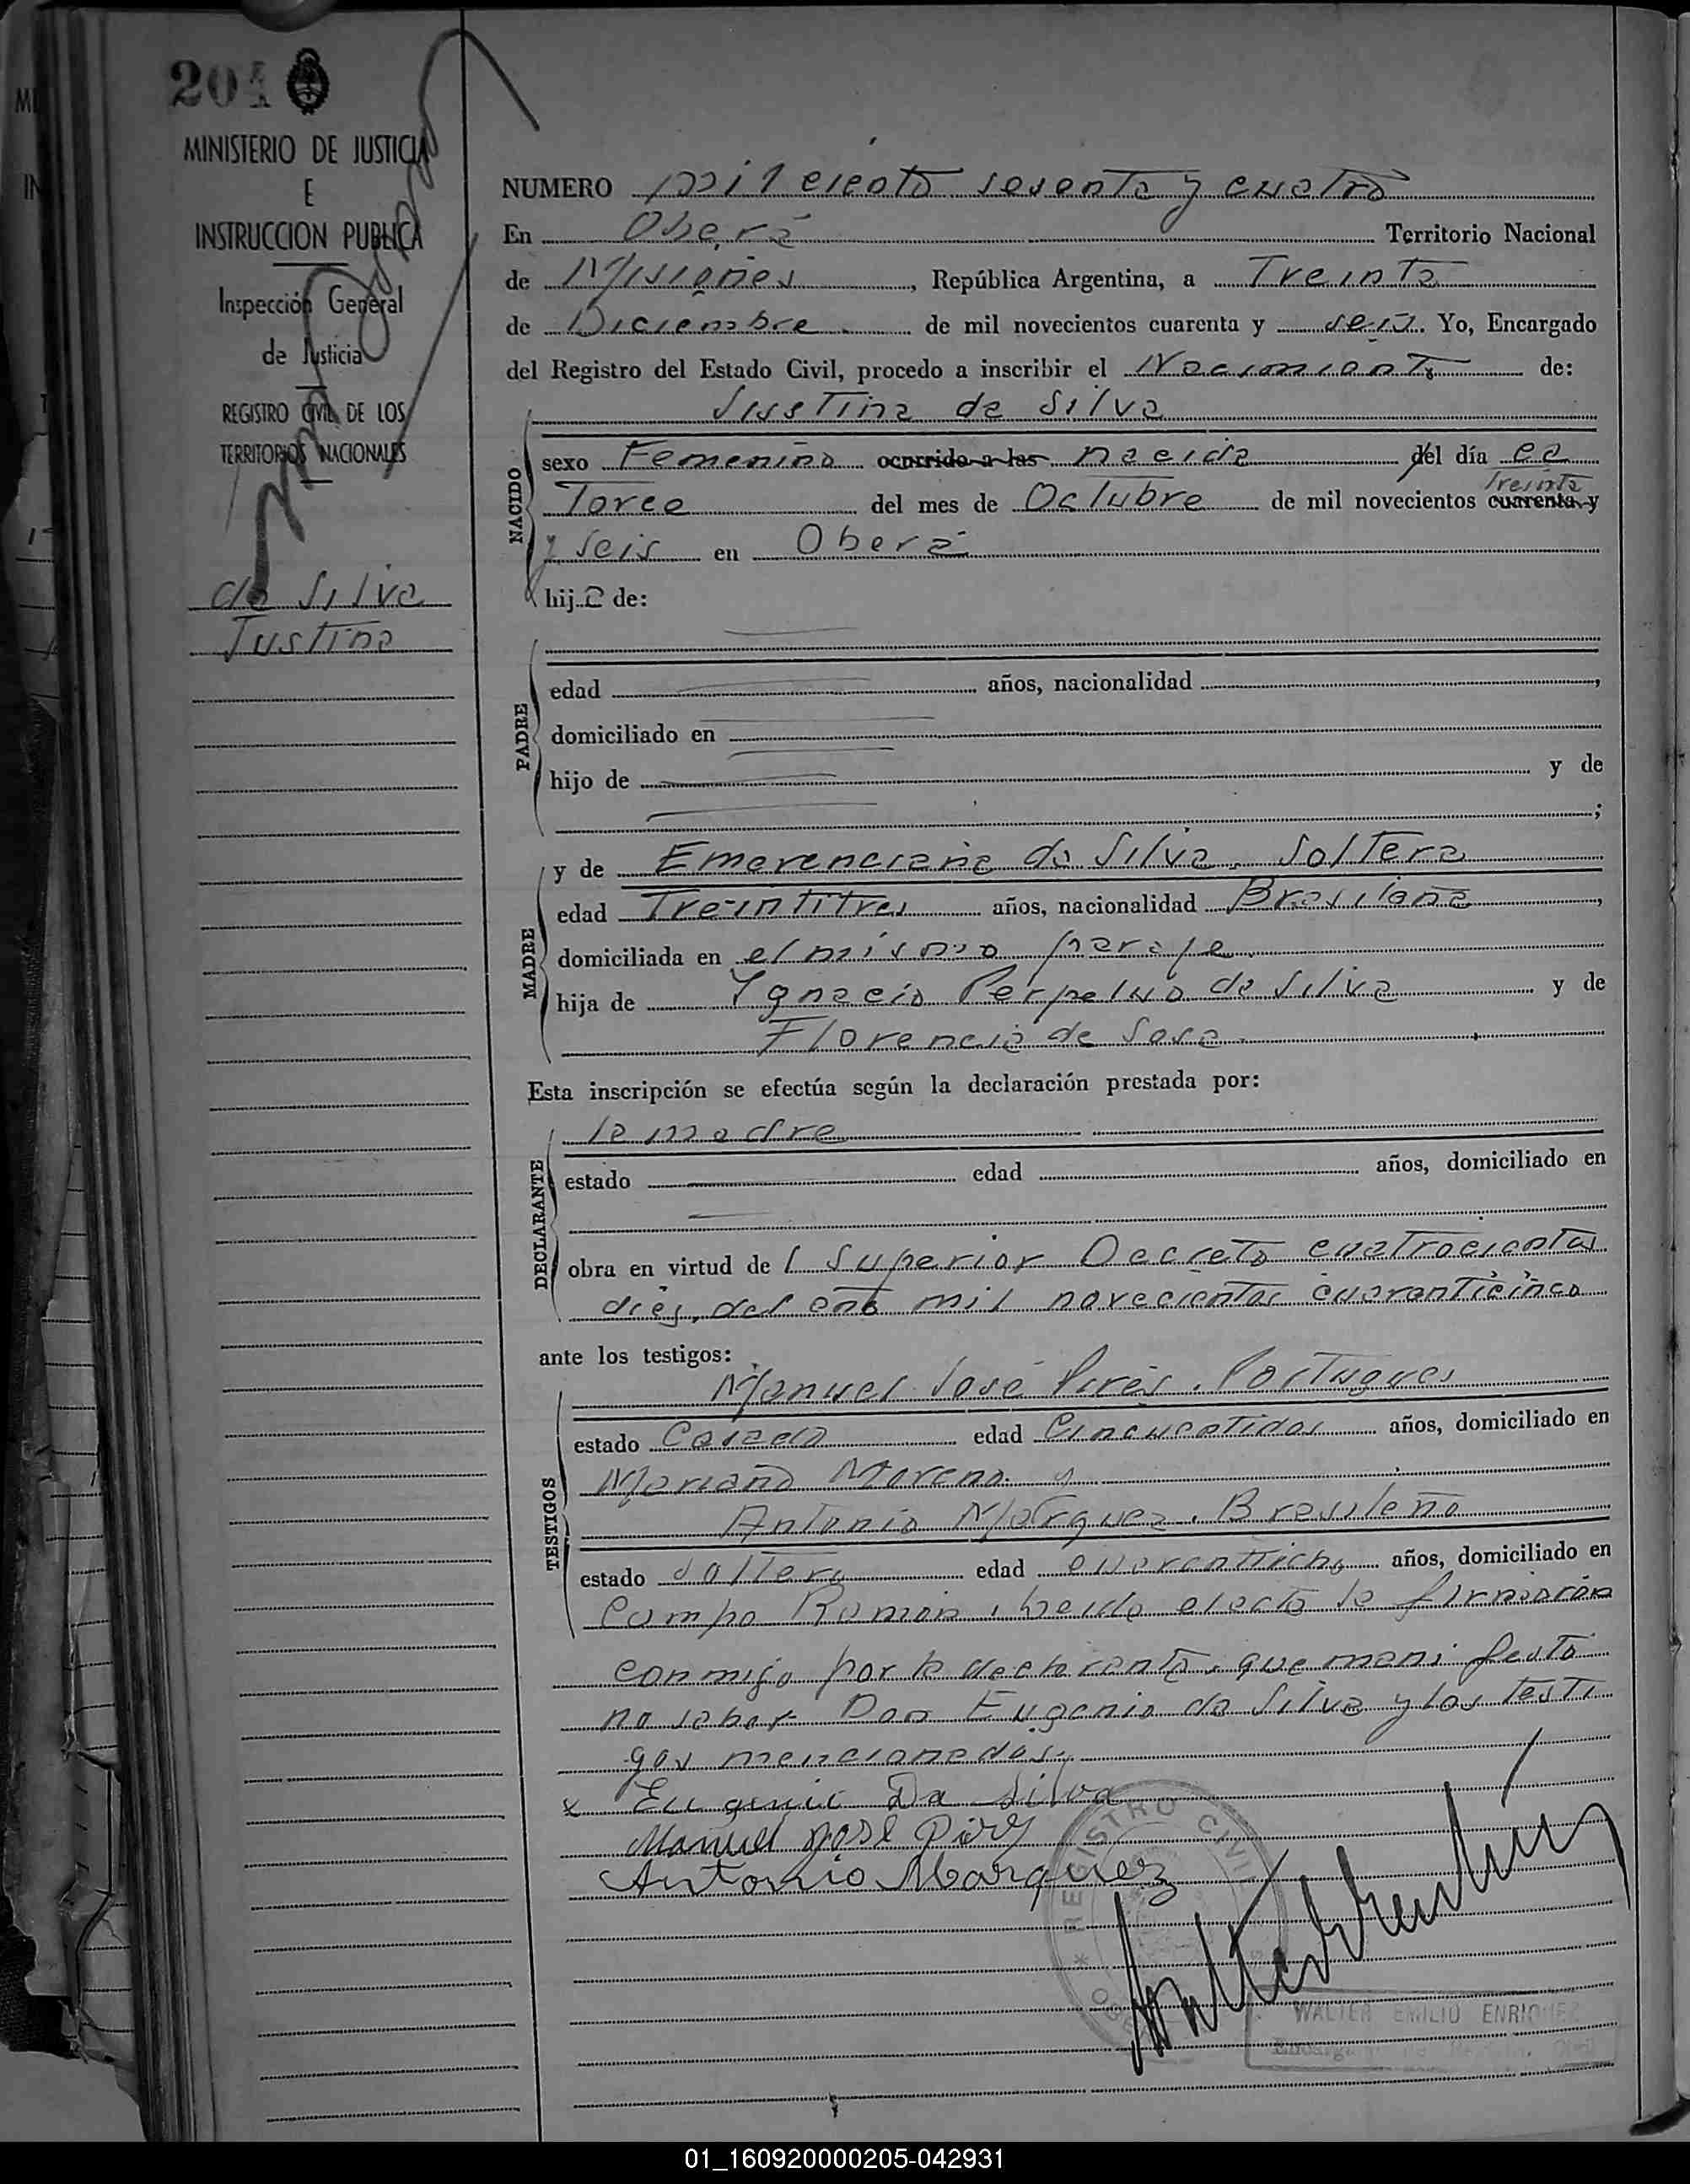 204
MINISTERIO DE JUSTICIA
E
INSTRUCCION PUBLICA
Inspección General
de Justicia
REGISTRO CIVIL DE LOS
TERRITORIOS NACIONALES
da Silva
Justina
NUMERO mil ciento sesenta y cuatro
En Oberá Territorio Nacional
de Misiones, República Argentina, a Treinta
de Diciembre de mil novecientos cuarenta y seis. Yo, Encargado
del Registro del Estado Civil, procedo a inscribir el Nacimiento de:
Justina da Silva
NACIDO
sexo Femenino ocurrido a las nacida del día ca
Treinta
torce del mes de Octubre de mil novecientos cuarenta y
y seis en Oberá
hija de:
PADRE
edad años, nacionalidad ,
domiciliado en
hijo de y de
;
MADRE
y de Emerenciana da Silva. Soltera
edad Treintitres años, nacionalidad Brasilana,
domiciliada en el mismo paraje
hija de Ygnacio Perpetuo da Silva y de
Florencia de Sosa
Esta inscripción se efectúa según la declaración prestada por:
DECLARANTE
la madre
estado edad años, domiciliado en
obra en virtud del Superior Decreto cuatrocientos
diez, del año mil novecientos cuarenticinco
ante los testigos:
TESTIGOS
Manuel José Pires. Portugues
estado Casado edad Cincuentidos años, domiciliado en
Mariano Moreno y
Antonio Marquez. Brasileño
estado soltero edad cuarentiocho años, domiciliado en
Campo Ramon, leida el acta la firmaron
conmigo por la declarante, que manifestó
no saber Don Eugenio da Silva y los testi
gos mencionados.
x Eugenio Da Silva
Manuel José Pires
Antonio Marquez
REGISTRO CIVIL
WALTER EMILIO ENRIQUEZ
01_160920000205-042931